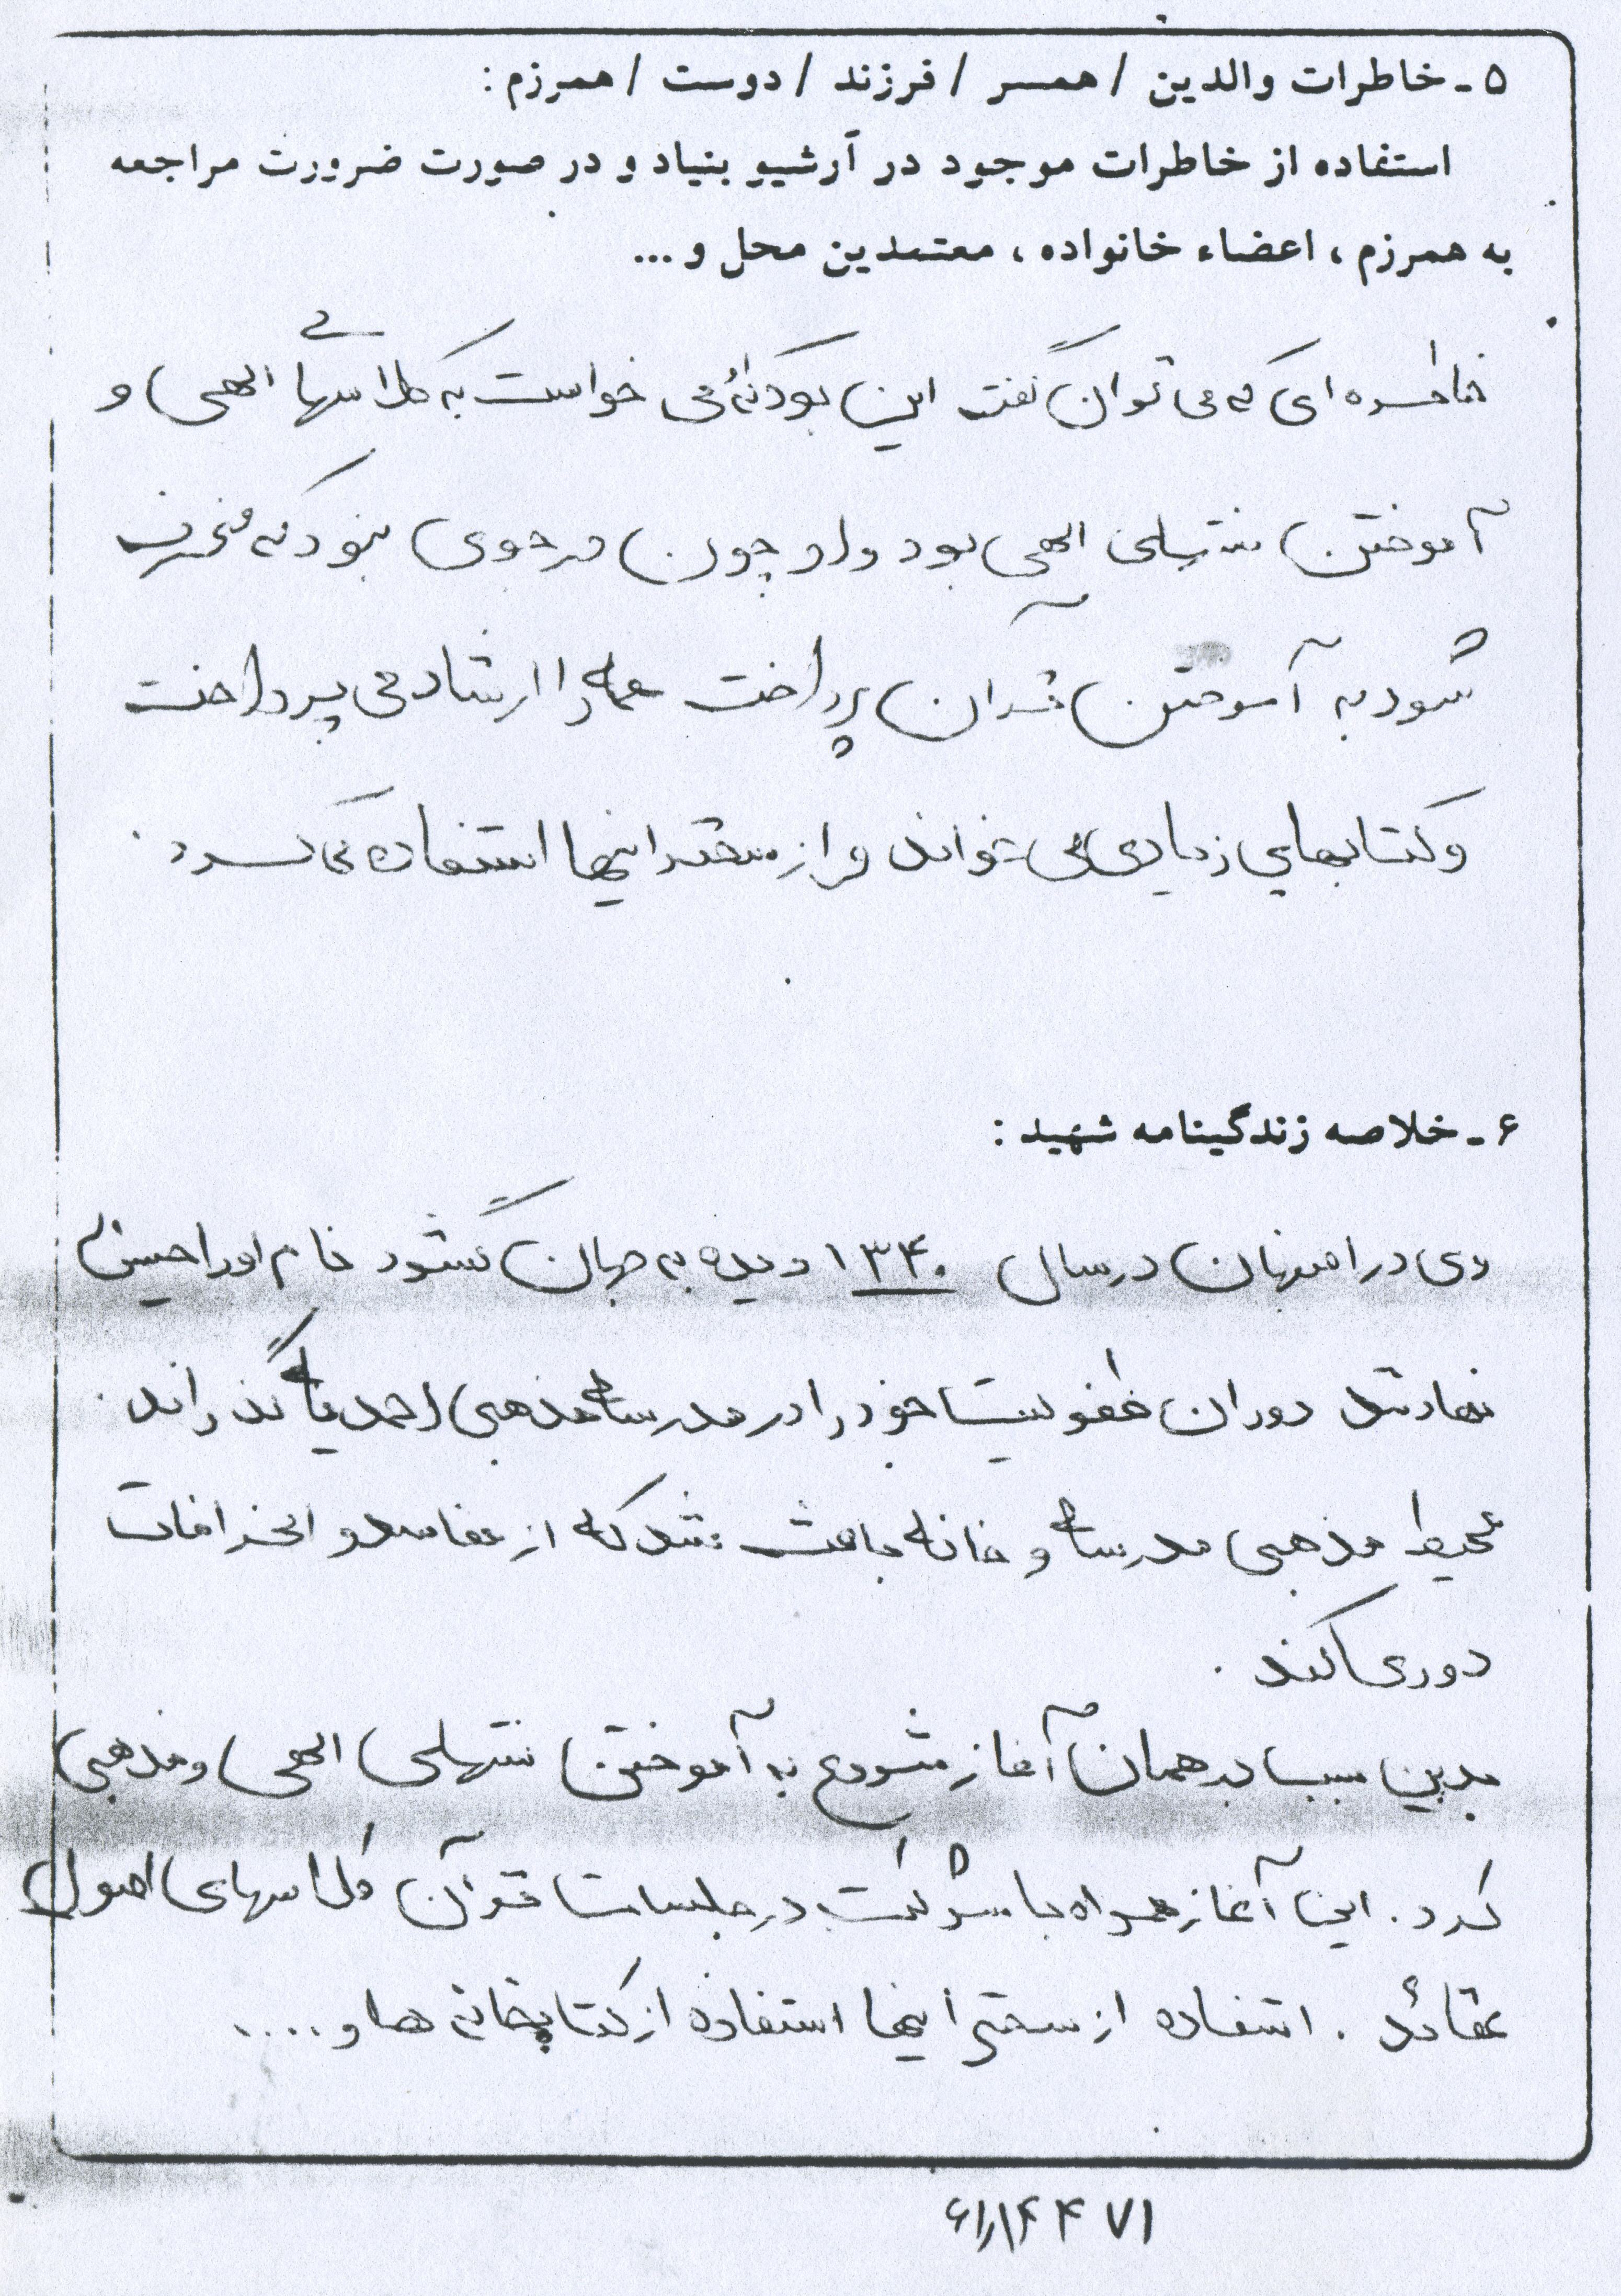 ۵ - خاطرات والدین / همسر / فرزند / دوست / همرزم :
استفاده از خاطرات موجود در آرشیو بنیاد و در صورت ضرورت مراجعه
به همرزم ، اعضاء خانواده ، معتمدین محل و ...
خاطره ای که می توان گفت این بود که می خواست به کلاسهای الهی و
آموختن الهی بود و او چون فردی نبود که منحرف
شود به آموختن قرآن پرداخت همه را ارشاد می پرداخت
و کتابهای زیادی می خواند و از سخنرانیها استفاده می کرد .
۶ - خلاصه زندگینامه شهید :
وی در اصفهان در سال ۱۳۴۰ دیده به جهان گشود نام او را حسین
نهادند دوران طفولیت خود را در مدرسه مذهبی احمدیه گذراند .
محیط مذهبی مدرسه و خانه باعث شد که از مفاسد و انحرافات
دوری کند .
بدین سبب در همان آغاز شروع به آموختن الهی و مذهبی
کرد . این آغاز همراه با شرکت در جلسات قرآن کلاسهای اصول
عقائد . استفاده از سخنرانیها استفاده از کتابخانه ها و ....